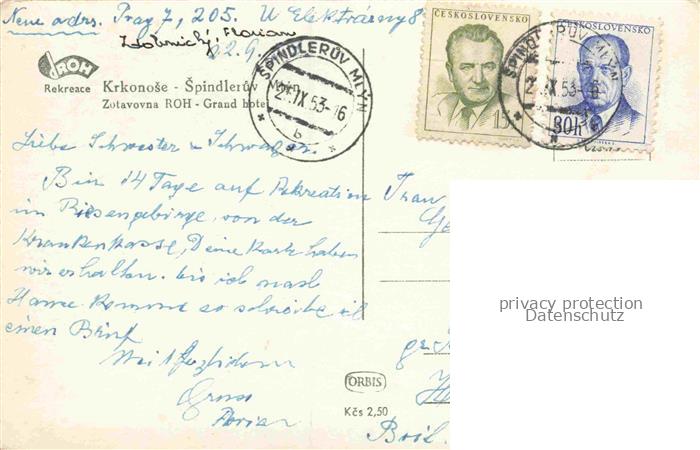 Neue adrs. Prag 7, 205. U Elektrárny 8
Florian
22.9.
ROH
Rekreace
Krkonoše - Špindlerův
Zotavovna ROH - Grand hotel
ŠPINDLERŮV MLÝN
2 .IX 53-16
b
ČESKOSLOVENSKO
15
ČESKOSLOVENSKO
30h
ŠPINDLERŮV MLÝN
2 .IX 53
Liebe Schwester u Schwager.
Bin 14 Tage auf Rekreation
im Riesengebirge, von der
Krankenkasse, Deine Karte haben
wir erhalten. bis ich nach
Hause komme so schreibe ich
einen Brief
Mit
Gruss
Florian
Frau
ORBIS
Kčs 2,50
privacy protection
Datenschutz